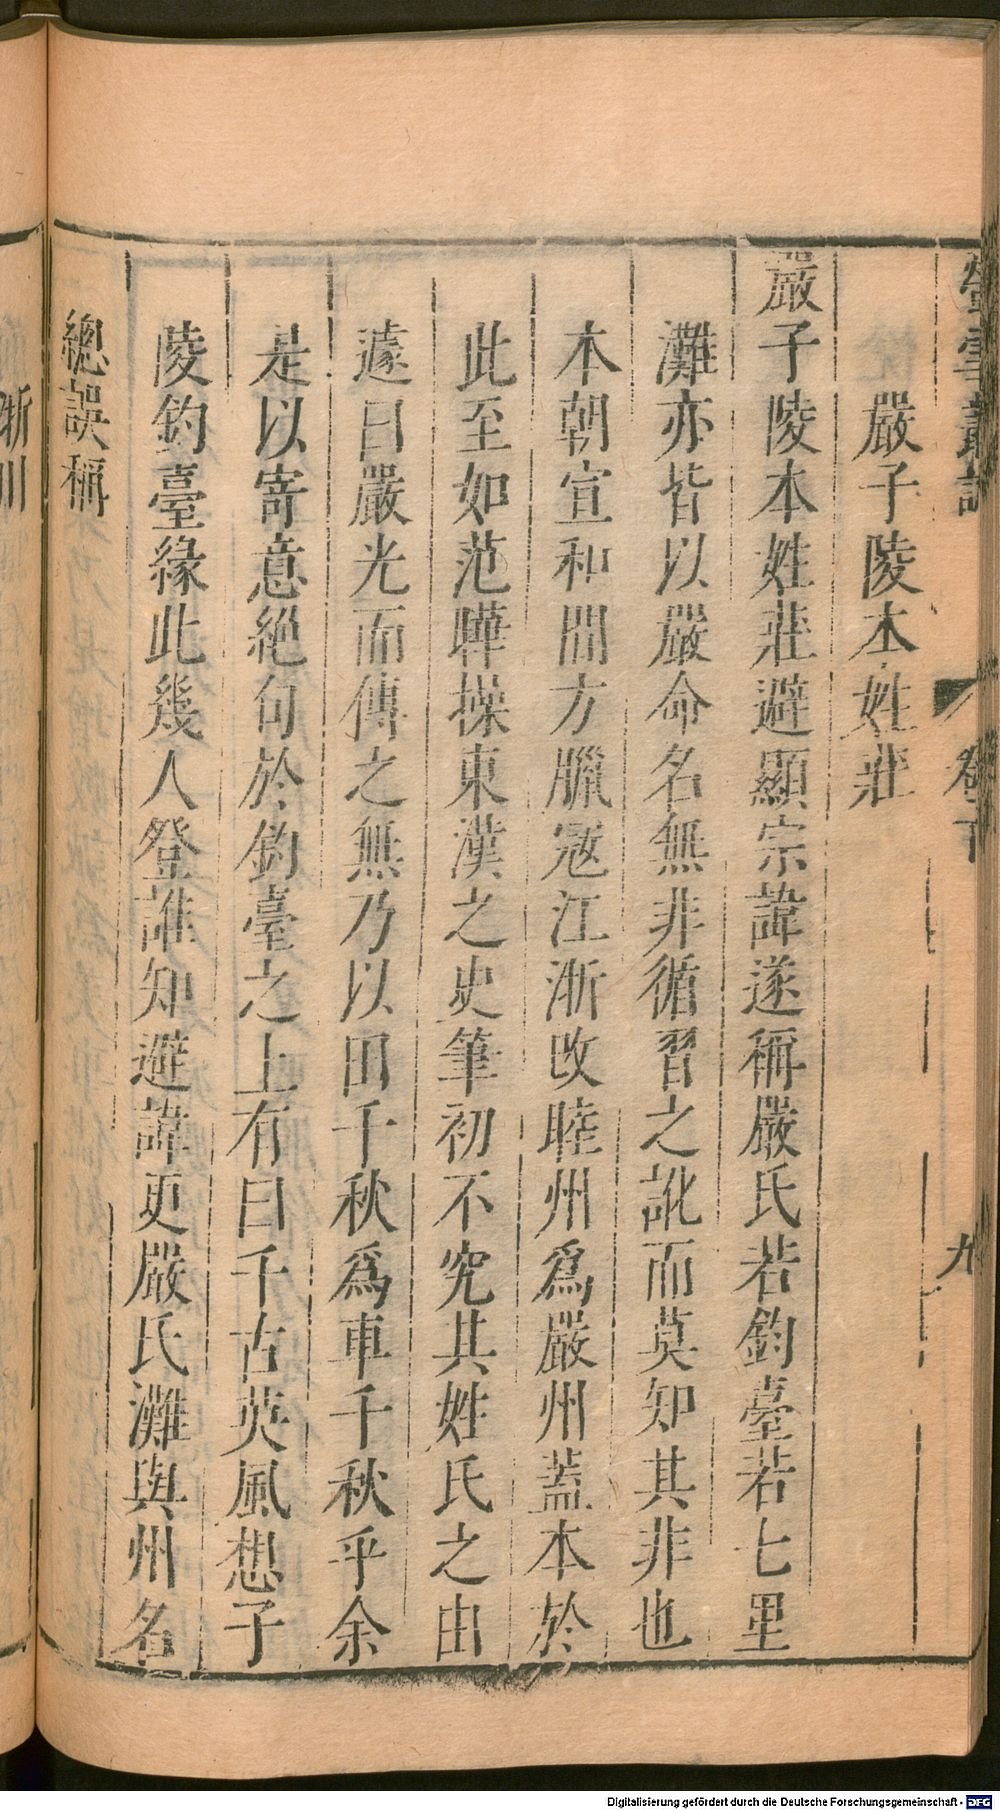 螢雪叢說
卷下
九
嚴子陵本姓莊
嚴子陵本姓莊避顯宗諱遂稱嚴氏若釣臺若七里
灘亦皆以嚴命名無非循習之訛而莫知其非也
本朝宣和間方臘冦江浙改睦州爲嚴州蓋本於
此至如范曄操東漢之史筆初不究其姓氏之由
遽曰嚴光而傳之無乃以田千秋爲車千秋乎余
是以寄意絕句於釣臺之上有曰千古英風想子
陵釣臺緣此幾人登誰知避諱更嚴氏灘與州名
總誤稱
浙川
Digitalisierung gefördert durch die Deutsche Forschungsgemeinschaft - DFG